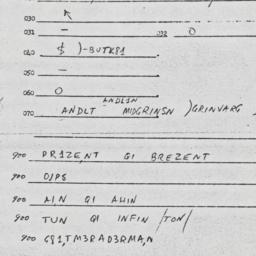 030
031 — 032 O
040 $ )-BUTK81
050 —
060 O
ANDL1N
070 ANDLT MIDGRINSN )GRINVARG
900 PR1ZENT QI BREZENT
900 D1P8
900 A1N QI AHIN
900 TUN QI INFIN /TON/
900 G81,TM3RAD3RMA,N